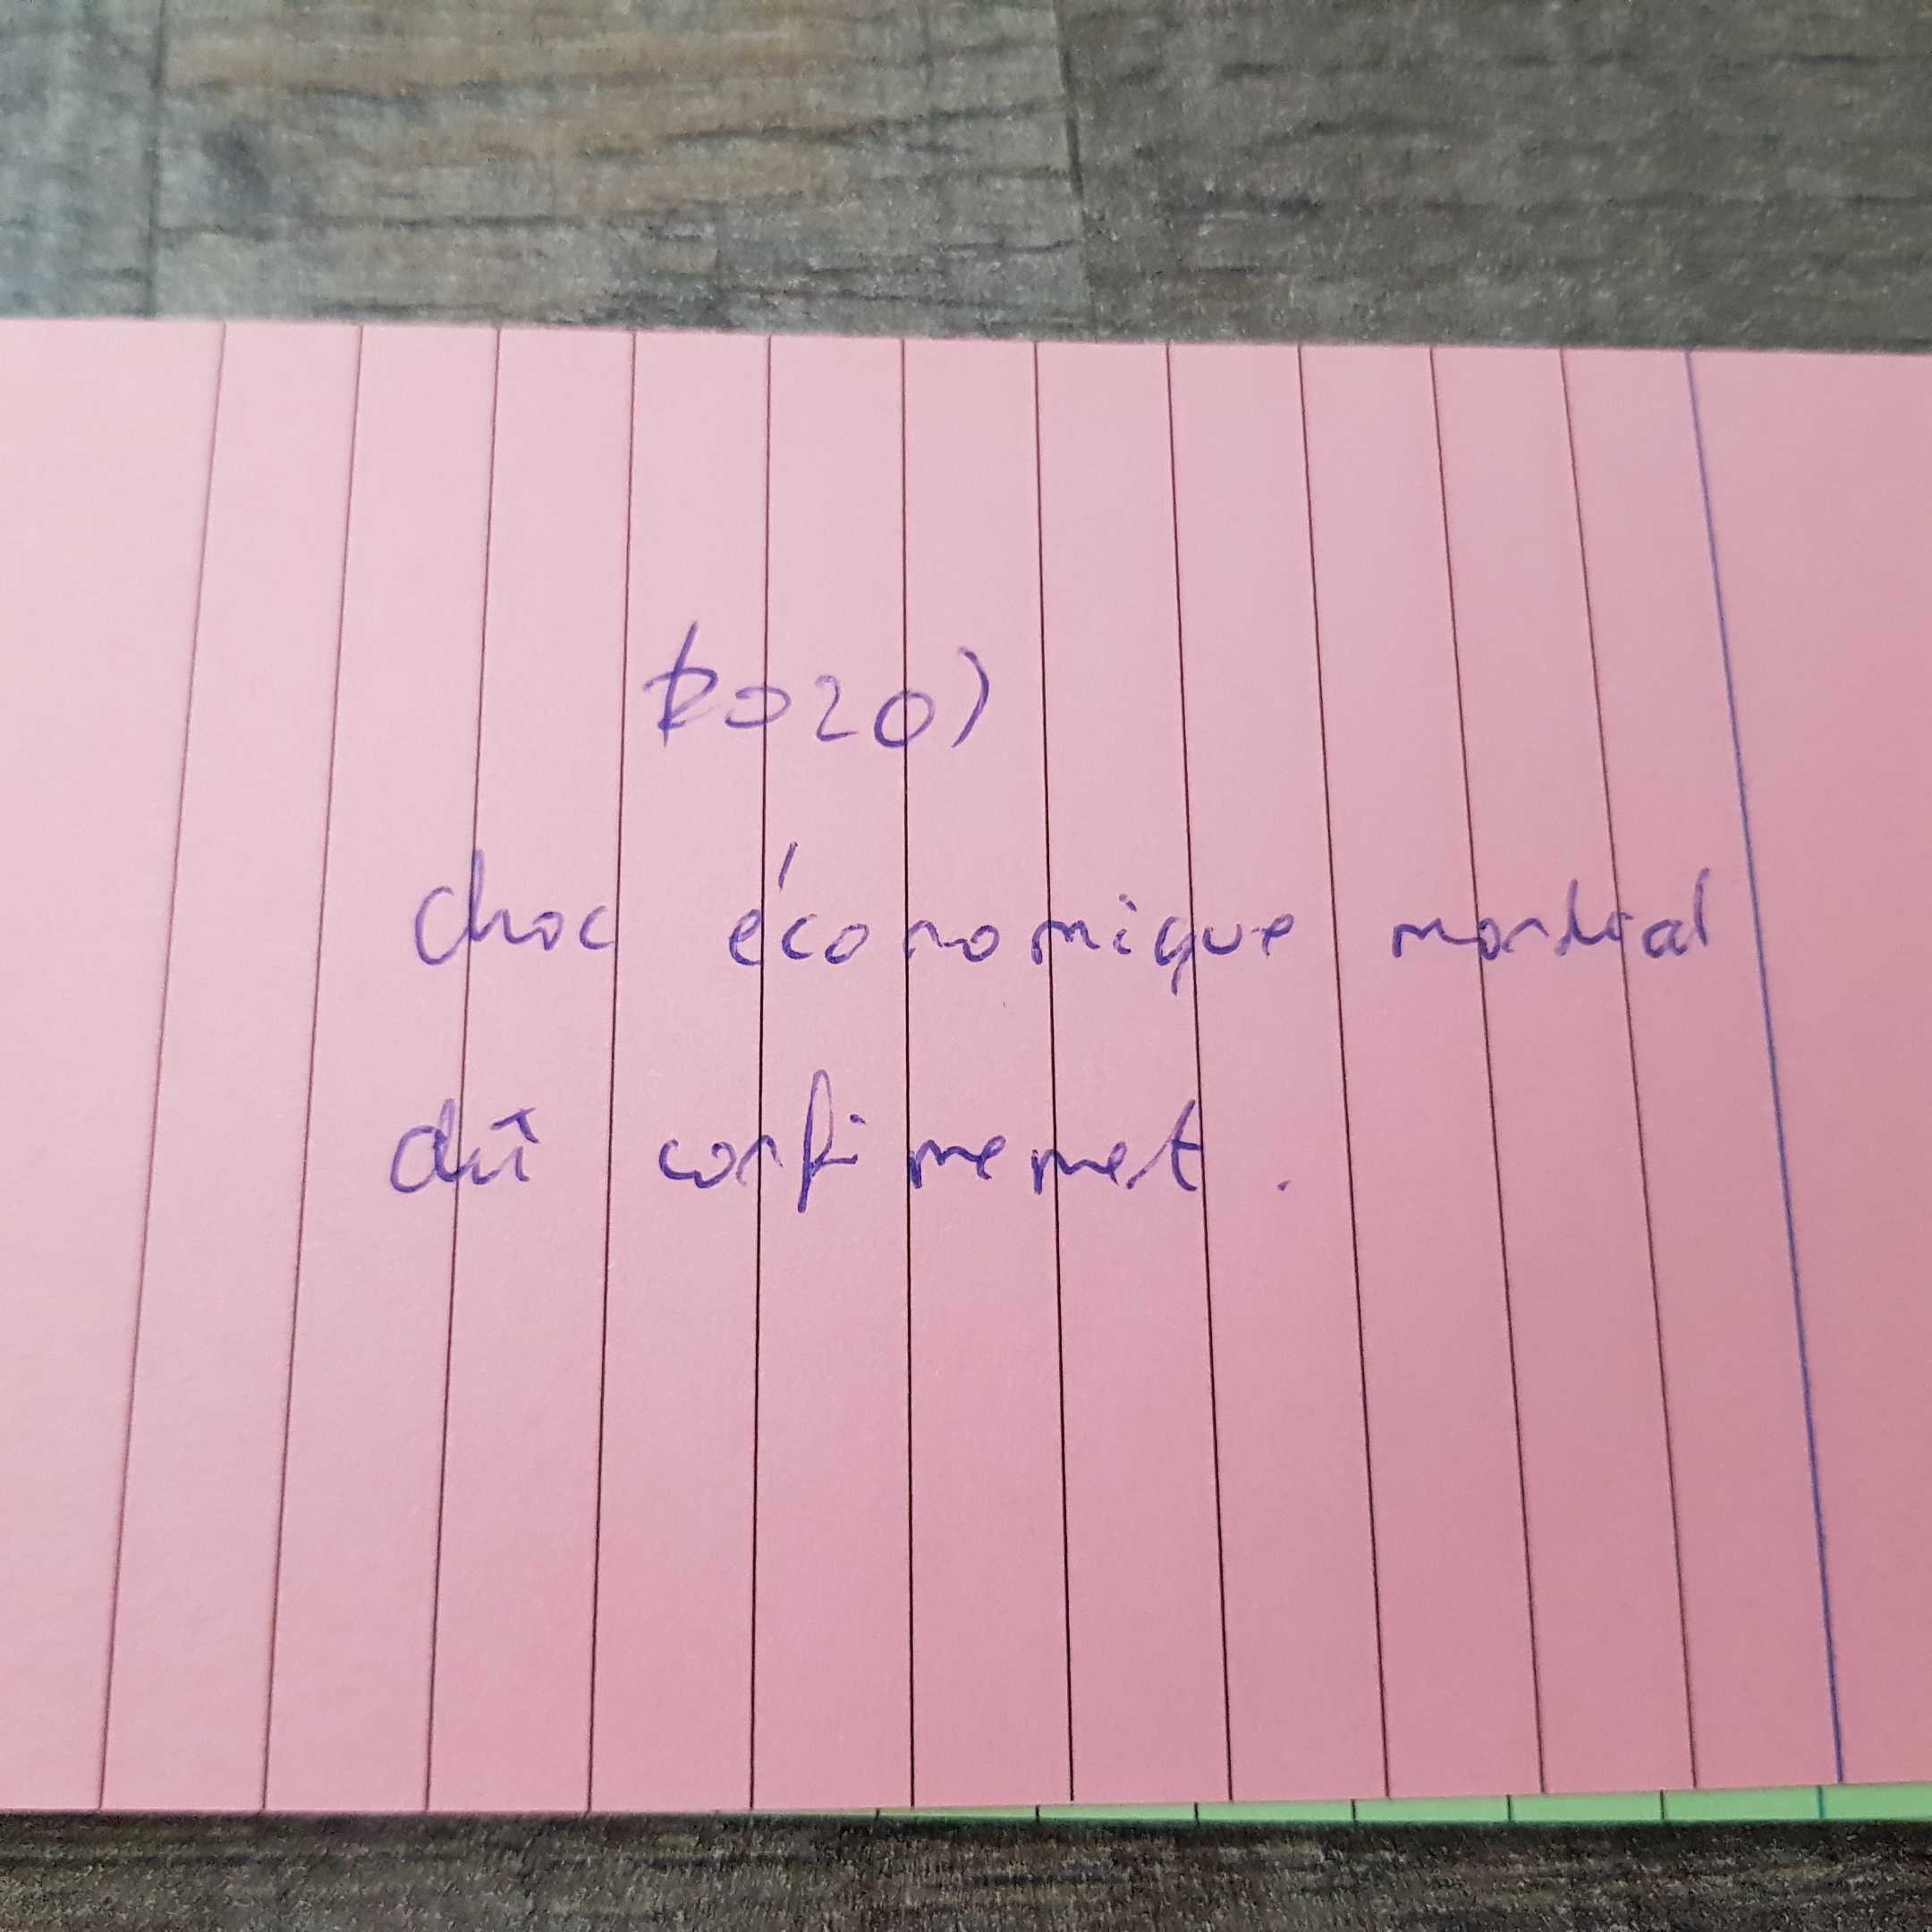 (2020)
choc économique mondial
dû confinement.